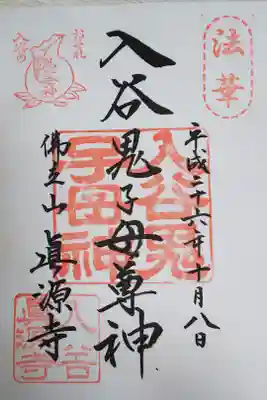 法華
平成二十六年十月八日
入谷鬼子母尊神
佛立山真源寺
入谷鬼
子母神